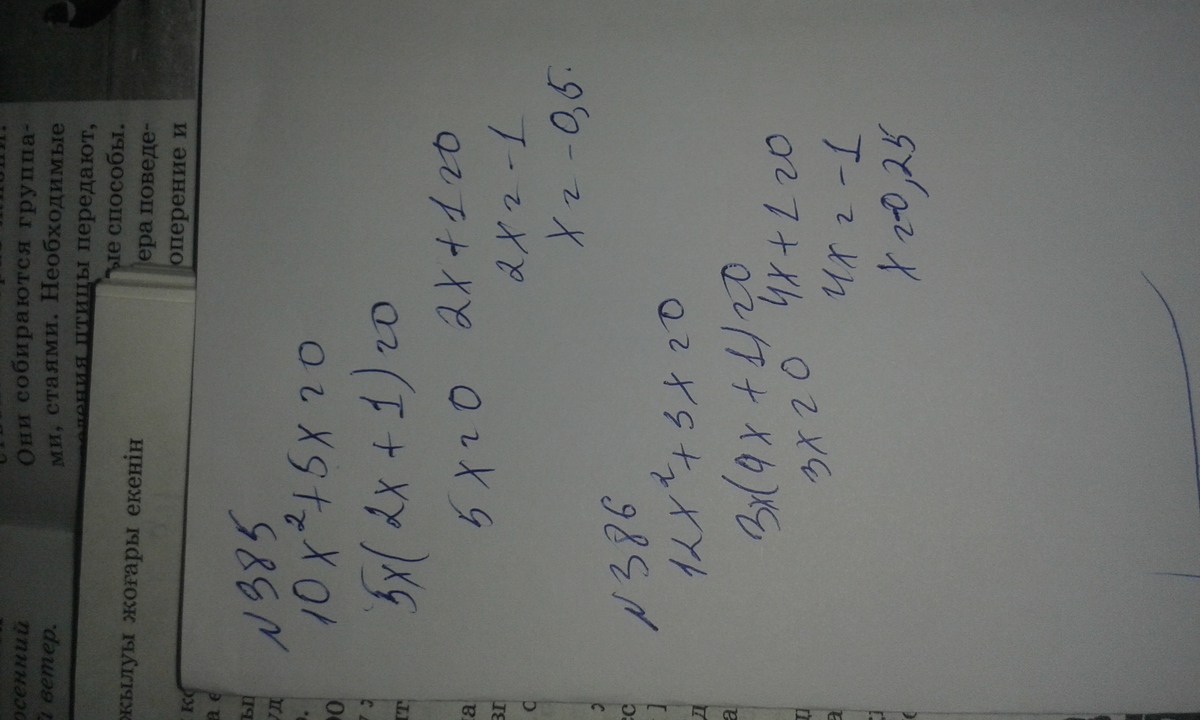 Они собираются группа-
ми, стаями. Необходимые
ведения птицы передают,
ые способы.
ера поведе-
оперение и
жылуы жоғары екенін
осенний
й ветер.
N385
10x²+5x=0
5x(2x+1)=0
5x=0 2x+1=0
2x=-1
x=-0,5.
N386
12x²+3x=0
3x(4x+1)=0
3x=0 4x+1=0
4x=-1
x=-0,25